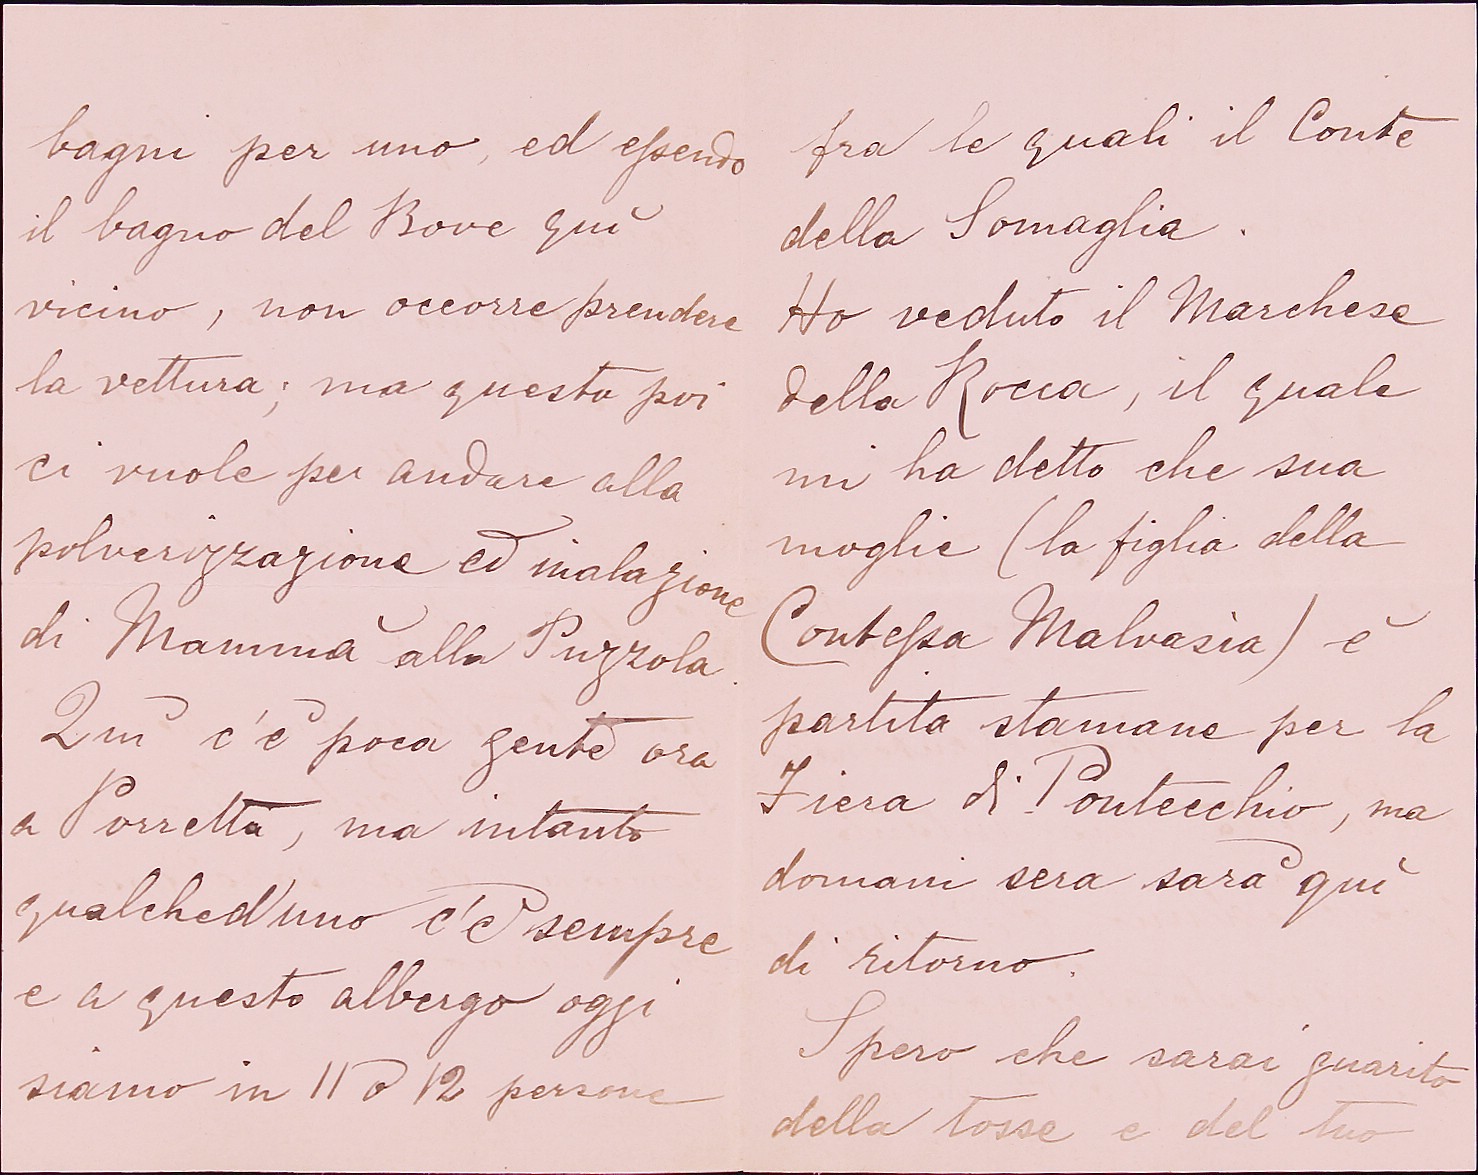 bagni per uno, ed essendo
il bagno del Bove quì
vicino, non occorre prendere
la vettura; ma questa poi
ci vuole per andare alla
polverizzazione ed inalazione
di Mammà alla Puzzola.
Quì c'è poca gente ora
a Porretta, ma intanto
qualched'uno c'è sempre
e a questo albergo oggi
siamo in 11 o 12 persone
fra le quali il Conte
della Somaglia.
Ho veduto il Marchese
della Rocca, il quale
mi ha detto che sua
moglie (la figlia della
Contessa Malvasìa) è
partita stamane per la
Fiera di Pontecchio, ma
domani sera sarà quì
di ritorno.
Spero che sarai guarito
della tosse e del tuo